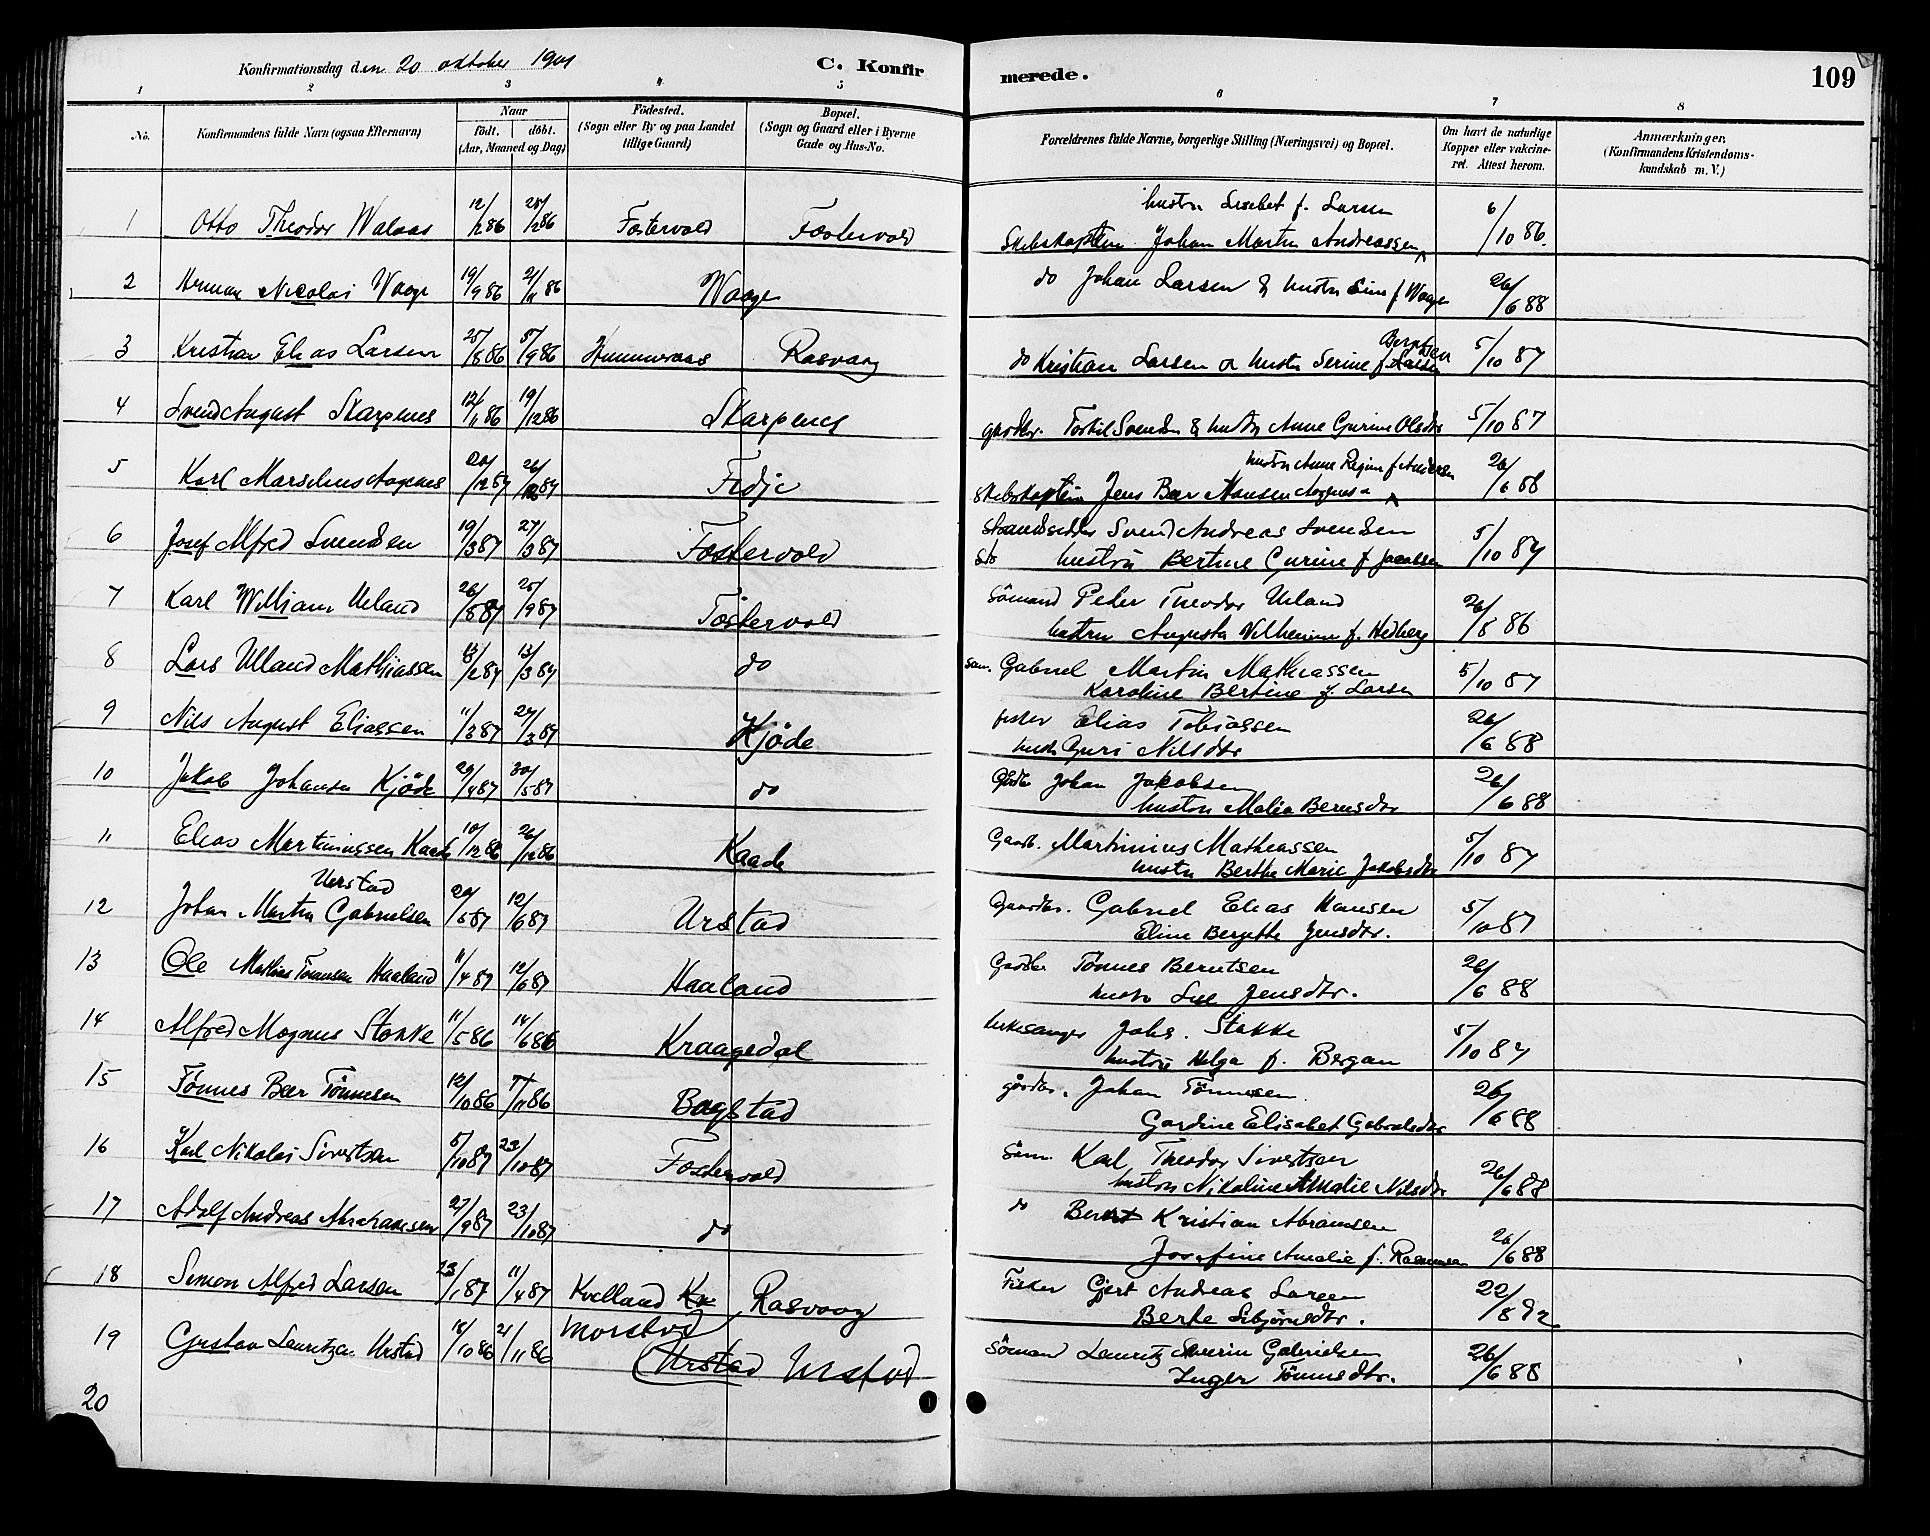 Konfirmationsdag den 20 oktober 1901
C. Konfirmerede.
109
1 2 3 4 5 6 7 8
No.
Konfirmandens fulde Navn (ogsaa Efternavn)
Naar
født. døbt.
(Aar, Maaned og Dag)
Födested.
(Sogn eller By og paa Landet
tillige Gaard)
Bopæl.
(Sogn og Gaard eller i Byerne
Gade og Hus-No.
Forældrenes fulde Navne, borgerlige Stilling (Næringsvei) og Bopæl.
Om havt de naturlige
Kopper eller vakcineret. Attest herom.
Anmærkninger,
(Konfirmandens Kristendomskundskab m. V.)
hustru Lisebet f. Larsen
1 Otto Theodor Walaas 12/12 86 28/12 86 Fostervold Fostervold Skibskaptein Johan Martin Andreassen 6/10 86.
2 Herman Nicolai Waage 19/9 86 21/11 86 Waage do Johan Larsen & hustru Sine f. Waage 26/6 88
Berntsen
3 Kristian Elias Larsen 25/8 86 5/9 86 Rasvaag do Kristian Larsen & hustru Serine f. Larsen 5/10 87
4 Svend August Skarpenes 12/11 86 19/12 86 Skarpenes gaardbr. Torkil Svendsen & hustru Anne Gurine Olsdtr 5/10 87
hustru Anne Regine f. Andersen
5 Karl Marselius Aagenes 20/12 87 26/12 87 Fedje Skibskaptein Jens Bær Hansen Aagenes 26/6 88
6 Josef Alfred Svendsen 19/3 87 27/3 87 Fostervold Strandsidder Svend Andreas Svendsen 5/10 87
hustru Bertine Gurine f. Jacobsen
7 Karl William Ueland 26/8 87 25/9 87 Fostervold Sömand Peder Theodor Ueland 26/8 86
hustru Augusta Vilhelmine f. Hedberg
8 Lars Ulland Mathiassen 13/2 87 13/3 87 do Söm. Gabriel Martin Mathiassen 5/10 87
Karoline Bertine f. Larsen
9 Nils August Eliassen 11/3 87 27/3 87 Kjöde fisker Elias Tobiassen 26/6 88
hustr Guri Nilsdtr
10 Jakob Johansen Kjöde 29/4 87 30/5 87 do Gbdr Johan Jakobsen 26/6 88
hustru Malia Bernsdtr
11 Elias Martinussen Kaade 10/12 86 26/12 86 Kaade Gaardb. Martinius Mathiassen 5/10 87
hustru Berthe Marie Jakobsdtr
Urstad
12 Johan Martin Gabrielsen 20/5 87 12/6 87 Urstad Gaardbr. Gabriel Elias Hansen 5/10 87
Eline Bergitte Jensdtr.
13 Ole Mathias Tönnesen Haaland 11/4 87 12/6 87 Haaland Gaardbr Tönnes Berntsen 26/6 88
hustr Jensdtr.
14 Alfred Magnus Stokke 11/5 86 14/6 86 Kraagedal kirkesanger Johs. Stokke 5/10 87
hustru Helga f. Bergan
15 Tönnes Bær Tönnesen 12/10 86 7/11 86 Bagstad gårdbr. Johan Tönnesen 26/6 88
Gardine Elisabet Gabrielsdtr
16 Karl Nikolai Sivertsen 5/10 87 23/10 87 Fostervold Söm. Karl Theodor Sivertsen 26/6 88
hustru Nikoline Amalie Nilsdtr
17 Adolf Andreas Abrahamsen 27/9 87 23/10 87 do do Bernt Kristian Abramsen 26/6 88
Josefine Amalie f. Rasmussen
18 Simon Alfred Larsen 23/1 87 11/4 87 Kvelland Kv Rasvaag Fisker Gjert Andreas Larsen 22/8 92
Berte Sibjørnsdtr.
19 Gustav Lauritzen Urstad 18/10 86 21/11 86 (Urstad Urstad Sömand Lauritz Severin Gabrielsen 26/6 88
Inger Tönnesdtr.
20